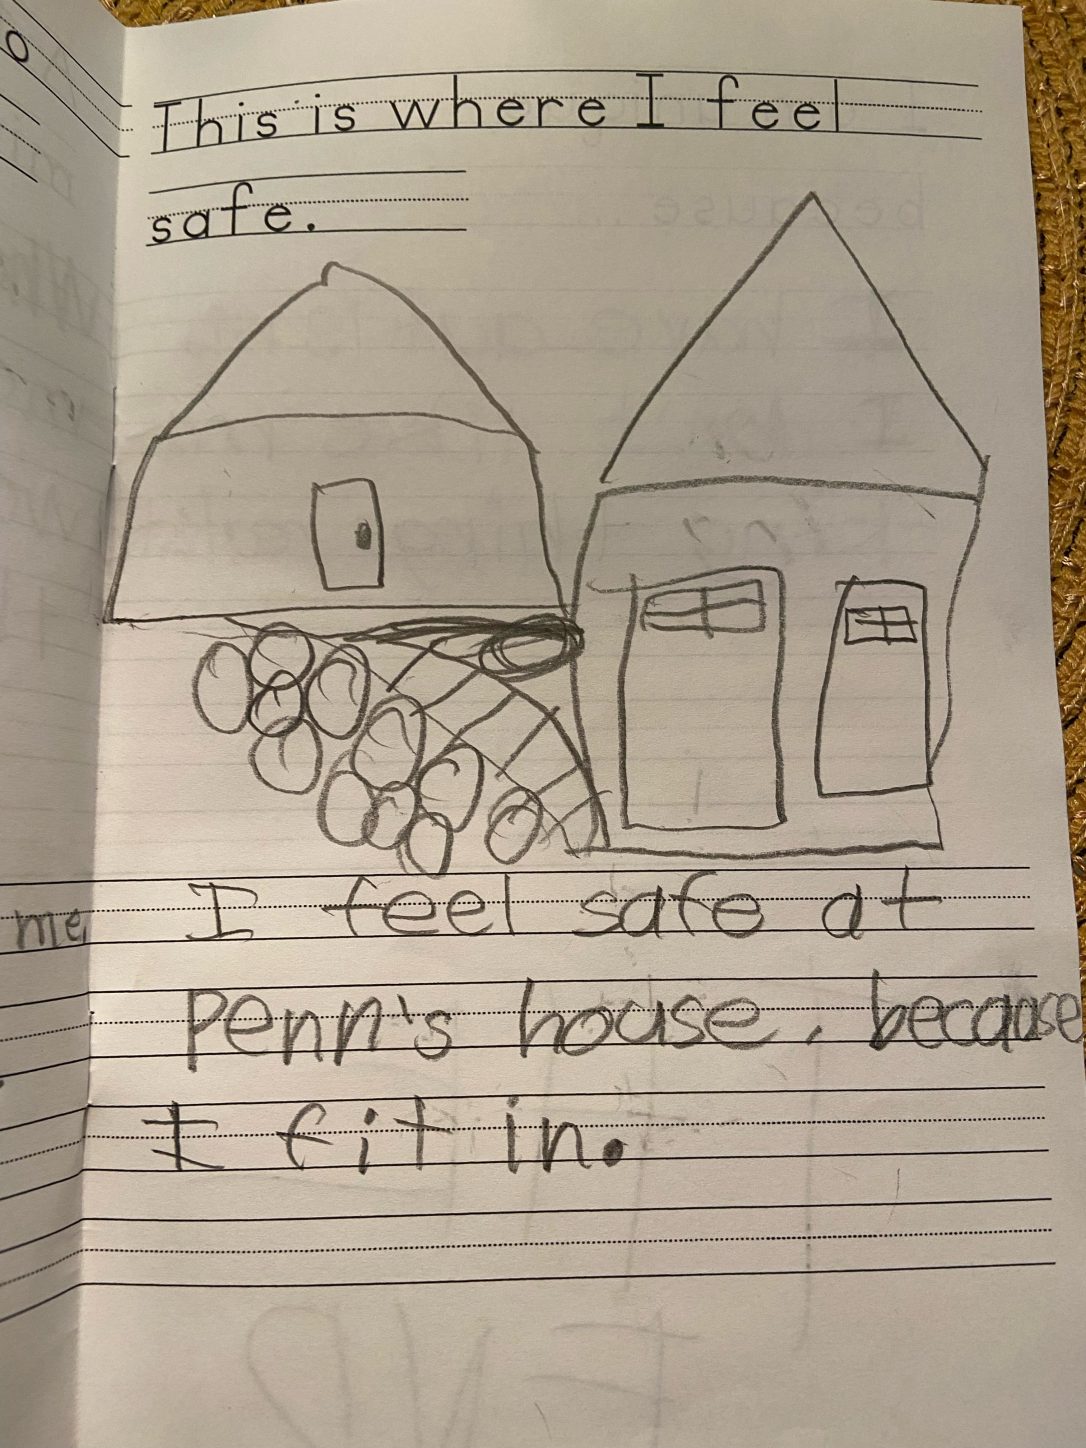 This is where I feel
safe.
me
I feel safe at
Penn's house, because
I fit in.